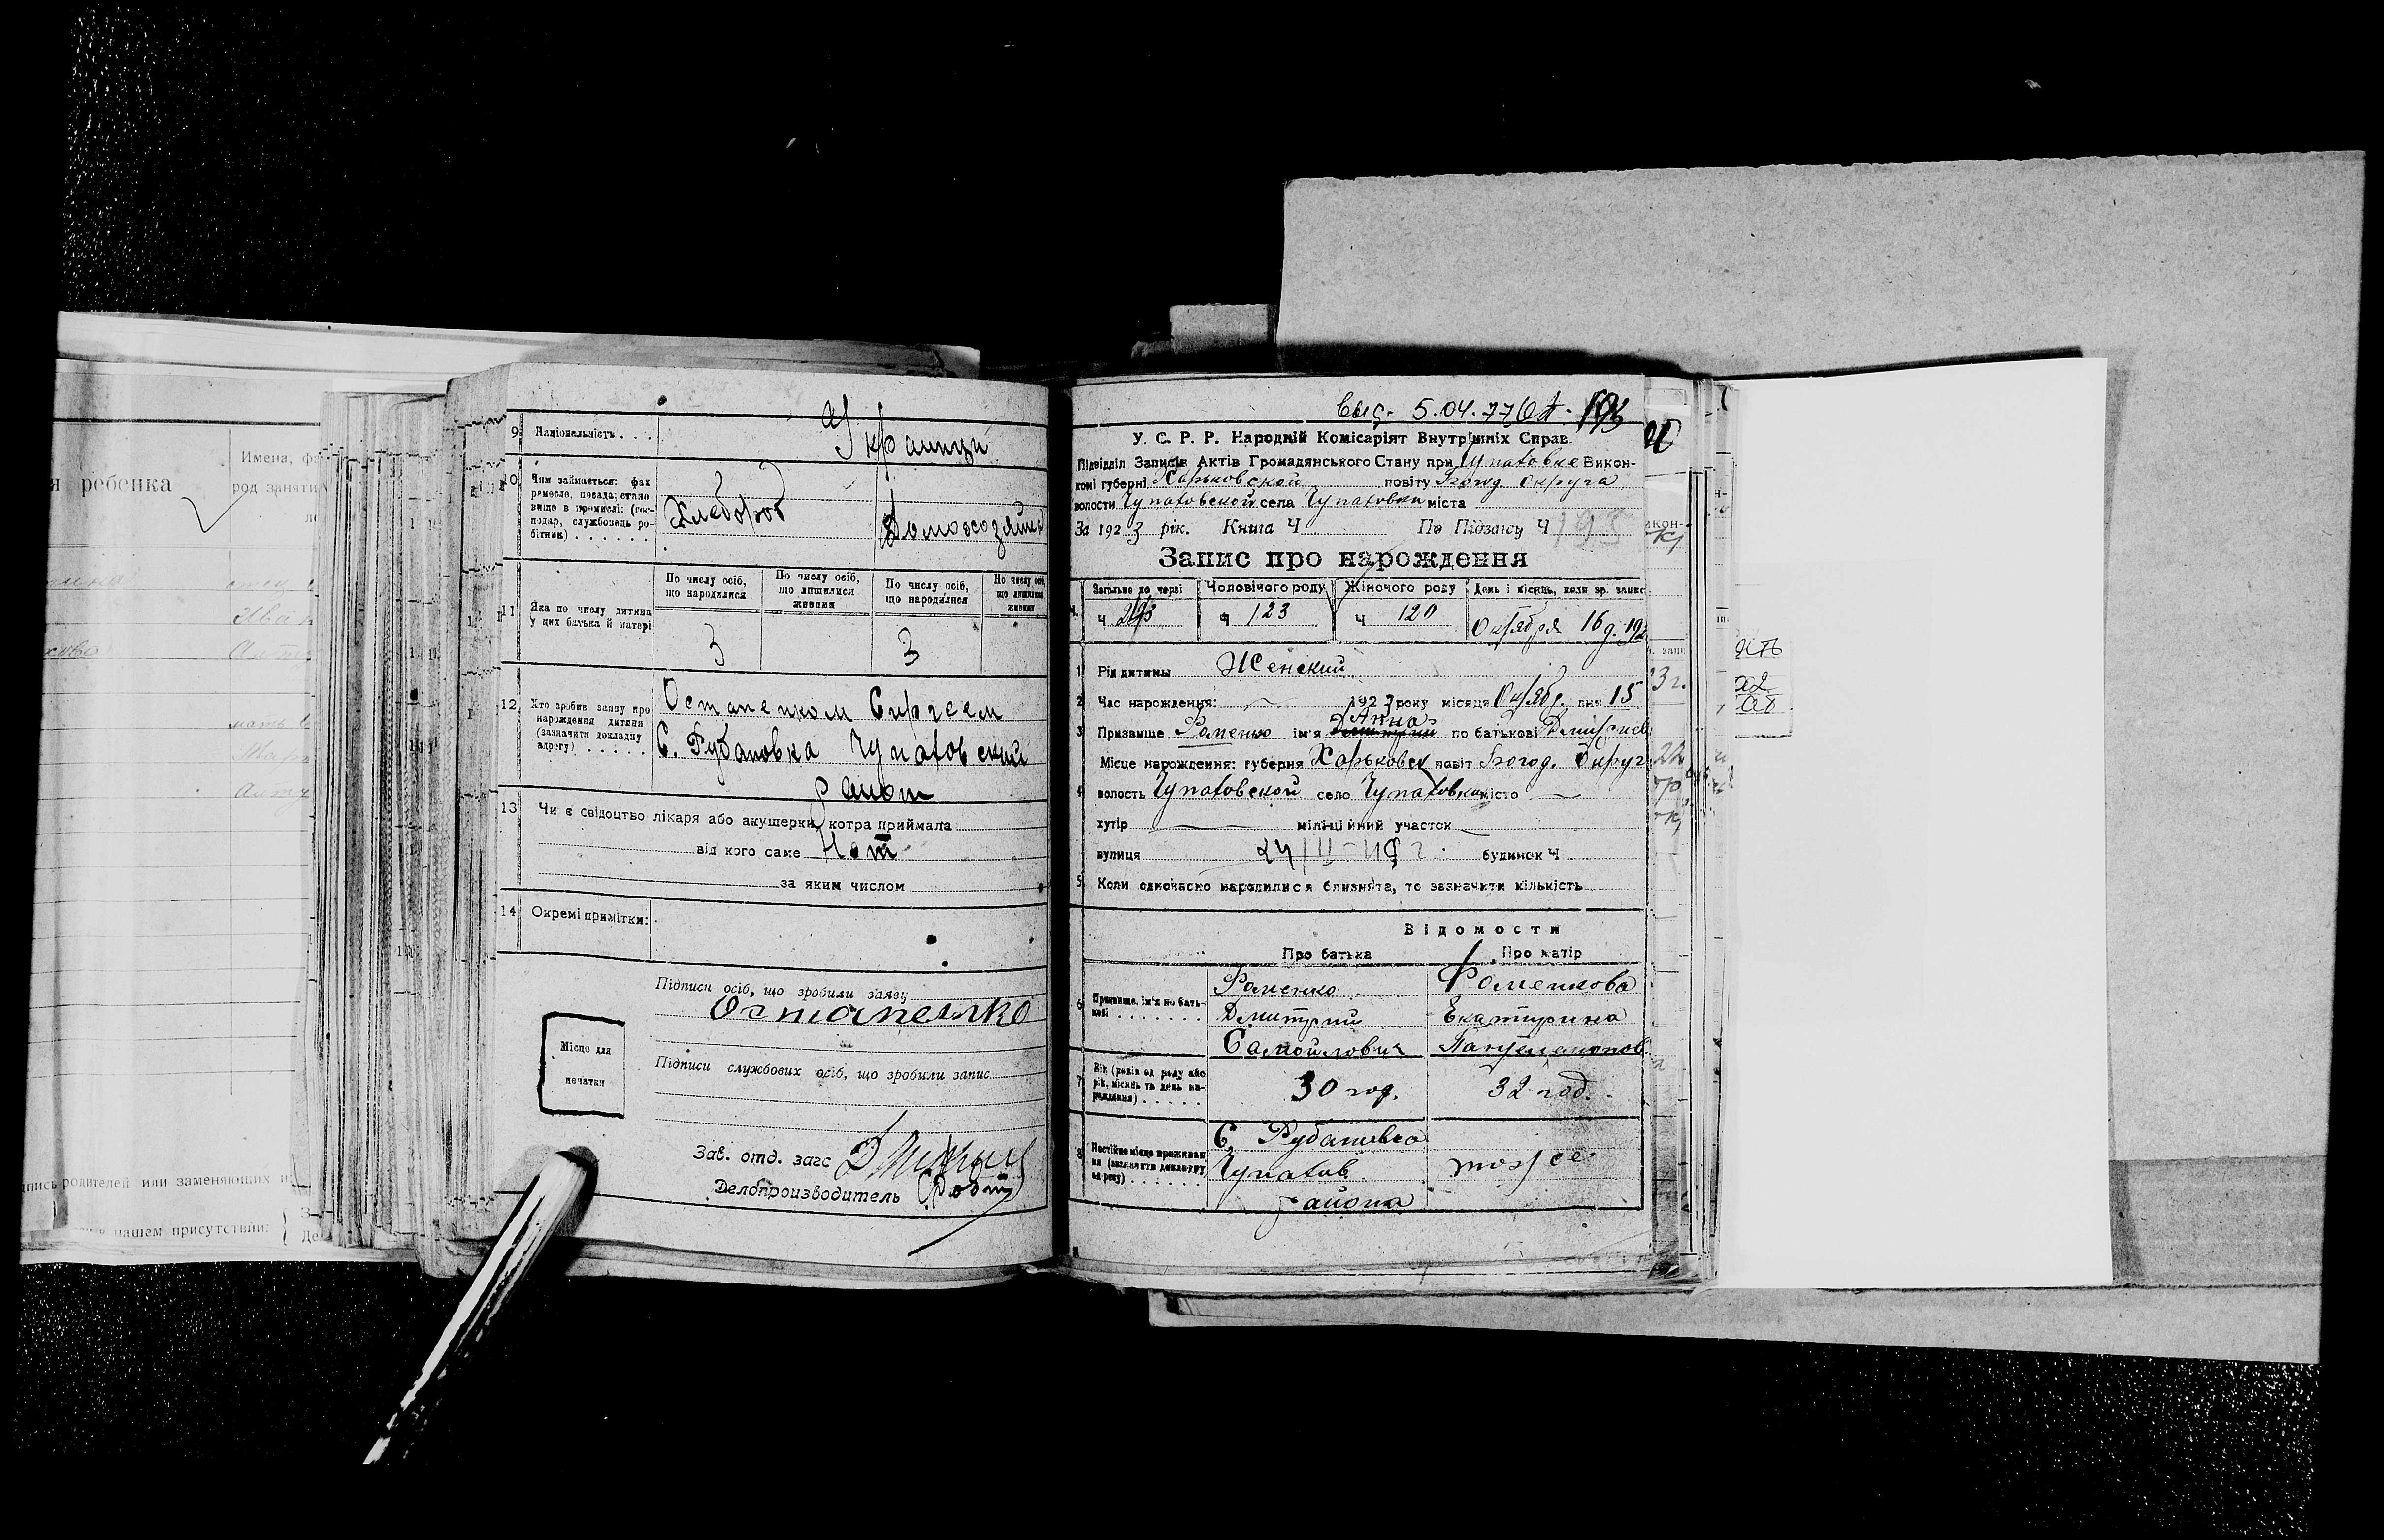 Имена, ф
я ребенка
род заняти
9 Національність . . . .
Украинци
10 Чим займається: фах
ремесло, посада; стано
вище в промислі: (гос-
подар, службовець ро-
бітник) . . . . . . .
Хлебороб
Домохозяйка
11 Яка по числу дитина
у цих батька й матері
По числу осіб,
що народилися
По числу осіб,
що лишилися
живими
По числу осіб,
що народилися
По числу осіб,
що лишилися
живими
3
3
12 Хто зробив заяву про
народження дитини
(зазначити докладну
адресу) . . . . .
Остапенком Сергеем
С. Рубановка Чупаховский
район
13 Чи є свідоцтво лікаря або акушерки, котра приймала
від кого саме Нет
за яким числом
14 Окремі примітки:
Підписи осіб, що зробили заяву
Остапенко
Місце для
печатки
Підписи службових осіб, що зробили запис
Зав. отд. загс
Делопроизводитель
пись родителей или заменяющих и
нашем присутствии:
5.04.77 193
У. С. Р. Р. Народній Комісаріят Внутрішніх Справ.
Підвідділ Записів Актів Громадянського Стану при Чупаховке Викон-
комі губерні Харьковской повіту Богод. Округа
волости Чупаховской села Чупаховки міста
За 1923 рік. Книга Ч По Підзапсу Ч 193
Запис про народження
Загально по черзі Чоловічого роду Жіночого роду День і місяць, коли зр. запис
Ч 243 Ч 123 Ч 120 Октября 16 д. 192
1 Рід дитини Женский
2 Час нарождення: — 1923 року місяця Октябр. дня 15
Анна
3 Призвище Фоменко ім'я Димитрий по батькові Дмитриев
Місце нарождення: губерня Харьковск повіт Богод. Округ
4 волость Чупаховской село Чупаховки місто —
хутір — міліційний участок —
вулиця будинок Ч
5 Коли одночасно народилися близнята, то зазначити кількість
Відомости
Про батька Про матір
6 Призвище, ім'я по бать-
кові . . . . . . .
Фоменко Фоменкова
Дмитрий Екатирина
Самойлович Пантелемонов
7 Вік (років од роду або
рік, місяць та день на-
родження) . . . . .
30 год. 32 год.
8 Постійне місце проживан
ня (зазначити докладну
адресу) . . . . . .
С. Рубановка
Чупахов.
района
тоже